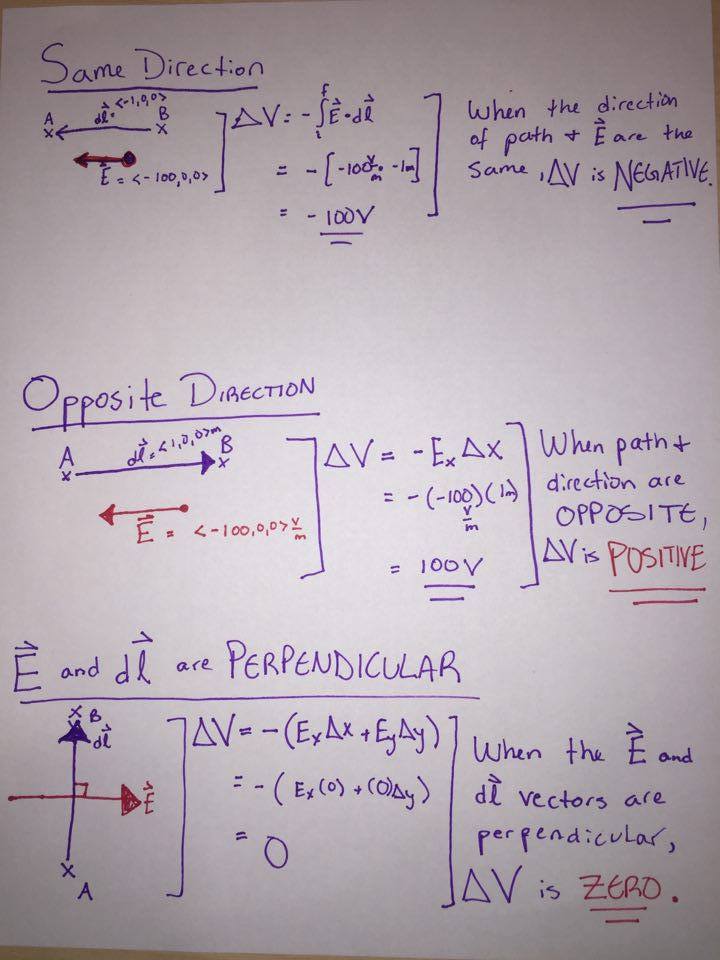 Same Direction
dl⃗ = <-1,0,0>
A B
x x
E⃗ = <-100,0,0>
ΔV = -∫ᵢᶠ E⃗ · dl⃗
= -[-100 V/m · -1m]
= -100V
When the direction
of path + E⃗ are the
same, ΔV is NEGATIVE.
Opposite DIRECTION
A dl⃗ = <1,0,0>m B
x x
E⃗ = <-100,0,0> V/m
ΔV = -Eₓ Δx
= -(-100)(1m)
V/m
= 100V
When path +
direction are
OPPOSITE,
ΔV is POSITIVE
E⃗ and dl⃗ are PERPENDICULAR
x B
dl⃗
E⃗
x
A
ΔV = -(EₓΔx + EyΔy)
= -(Eₓ(0) + (0)Δy)
= 0
When the E⃗ and
dl⃗ vectors are
perpendicular,
ΔV is ZERO.